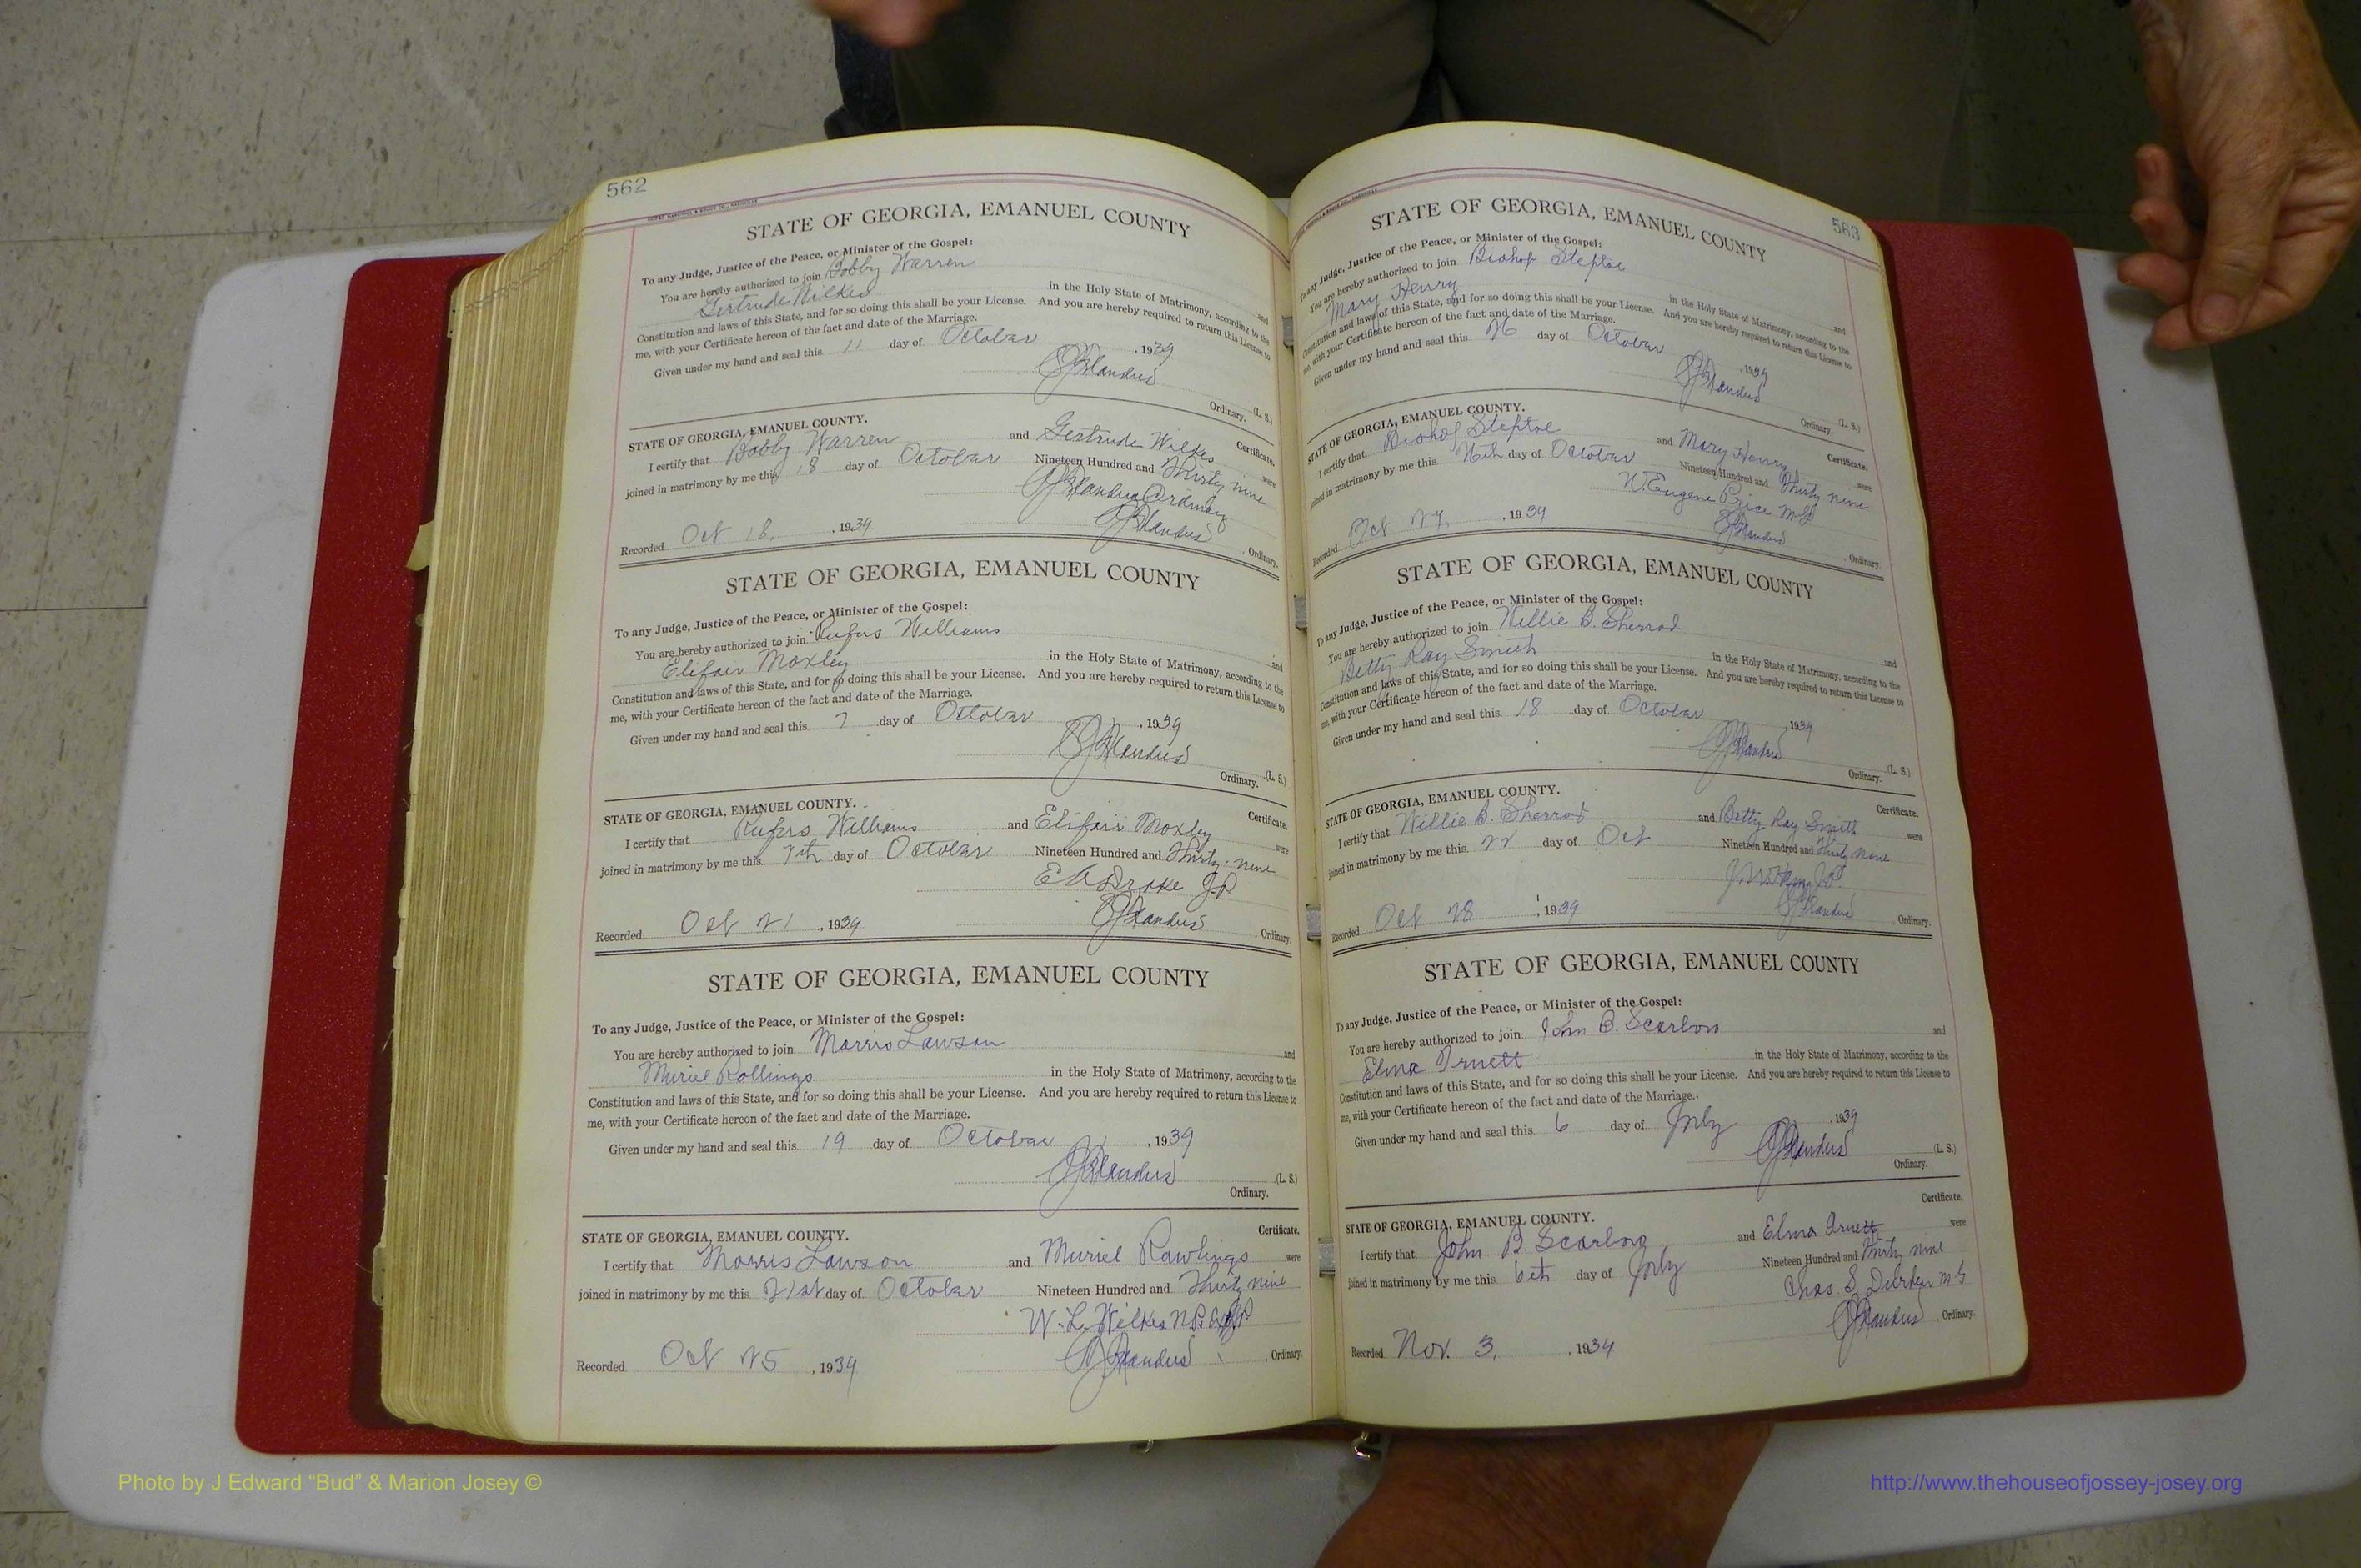 562
STATE OF GEORGIA, EMANUEL COUNTY
To any Judge, Justice of the Peace, or Minister of the Gospel:
You are hereby authorized to join Bobby Warren and
Gertrude Wilkes in the Holy State of Matrimony, according to the
Constitution and laws of this State, and for so doing this shall be your License. And you are hereby required to return this License to
me, with your Certificate hereon of the fact and date of the Marriage.
Given under my hand and seal this 11 day of October, 1939
(L. S.)
Ordinary.
STATE OF GEORGIA, EMANUEL COUNTY. Certificate.
I certify that Bobby Warren and Gertrude Wilkes were
joined in matrimony by me this 18 day of October Nineteen Hundred and Thirty nine
Ordinary
Recorded Oct 18, 1939 Ordinary.
STATE OF GEORGIA, EMANUEL COUNTY
To any Judge, Justice of the Peace, or Minister of the Gospel:
You are hereby authorized to join Rufus Williams and
Elifair Moxley in the Holy State of Matrimony, according to the
Constitution and laws of this State, and for so doing this shall be your License. And you are hereby required to return this License to
me, with your Certificate hereon of the fact and date of the Marriage.
Given under my hand and seal this 7 day of October, 1939
(L. S.)
Ordinary.
STATE OF GEORGIA, EMANUEL COUNTY. Certificate.
I certify that Rufus Williams and Elifair Moxley were
joined in matrimony by me this 7th day of October Nineteen Hundred and Thirty-nine
Drake J.P
Recorded Oct 21, 1939 Ordinary.
STATE OF GEORGIA, EMANUEL COUNTY
To any Judge, Justice of the Peace, or Minister of the Gospel:
You are hereby authorized to join Morris Lawson and
Muriel Rollings in the Holy State of Matrimony, according to the
Constitution and laws of this State, and for so doing this shall be your License. And you are hereby required to return this License to
me, with your Certificate hereon of the fact and date of the Marriage.
Given under my hand and seal this 19 day of October, 1939
(L. S.)
Ordinary.
STATE OF GEORGIA, EMANUEL COUNTY. Certificate.
I certify that Morris Lawson and Muriel Rawlings were
joined in matrimony by me this 21st day of October Nineteen Hundred and Thirty nine
W. L. Wilkes N.P.
Recorded Oct 25, 1939 Ordinary.
563
STATE OF GEORGIA, EMANUEL COUNTY
To any Judge, Justice of the Peace, or Minister of the Gospel:
You are hereby authorized to join Bishop Steptoe and
Mary Henry in the Holy State of Matrimony, according to the
Constitution and laws of this State, and for so doing this shall be your License. And you are hereby required to return this License to
me, with your Certificate hereon of the fact and date of the Marriage.
Given under my hand and seal this 26 day of October, 1939
(L. S.)
Ordinary.
STATE OF GEORGIA, EMANUEL COUNTY. Certificate.
I certify that Bishop Steptoe and Mary Henry were
joined in matrimony by me this 26th day of October Nineteen Hundred and Thirty nine
W. Eugene Price M.G
Recorded Oct 27, 1939 Ordinary.
STATE OF GEORGIA, EMANUEL COUNTY
To any Judge, Justice of the Peace, or Minister of the Gospel:
You are hereby authorized to join Willie B. Sherrod and
Betty Ray Smith in the Holy State of Matrimony, according to the
Constitution and laws of this State, and for so doing this shall be your License. And you are hereby required to return this License to
me, with your Certificate hereon of the fact and date of the Marriage.
Given under my hand and seal this 18 day of October, 1939
(L. S.)
Ordinary.
STATE OF GEORGIA, EMANUEL COUNTY. Certificate.
I certify that Willie B. Sherrod and Betty Ray Smith were
joined in matrimony by me this 22 day of Oct Nineteen Hundred and Thirty nine
J.P.
Recorded Oct 28, 1939 Ordinary.
STATE OF GEORGIA, EMANUEL COUNTY
To any Judge, Justice of the Peace, or Minister of the Gospel:
You are hereby authorized to join John B. Scarboro and
Elma in the Holy State of Matrimony, according to the
Constitution and laws of this State, and for so doing this shall be your License. And you are hereby required to return this License to
me, with your Certificate hereon of the fact and date of the Marriage.
Given under my hand and seal this 6 day of July, 1939
(L. S.)
Ordinary.
STATE OF GEORGIA, EMANUEL COUNTY. Certificate.
I certify that John B. Scarboro and Elma were
joined in matrimony by me this 6th day of July Nineteen Hundred and Thirty nine
Chas S. M G
Ordinary.
Recorded Nov. 3, 1939
Photo by J Edward “Bud” & Marion Josey ©
http://www.thehouseofjossey-josey.org